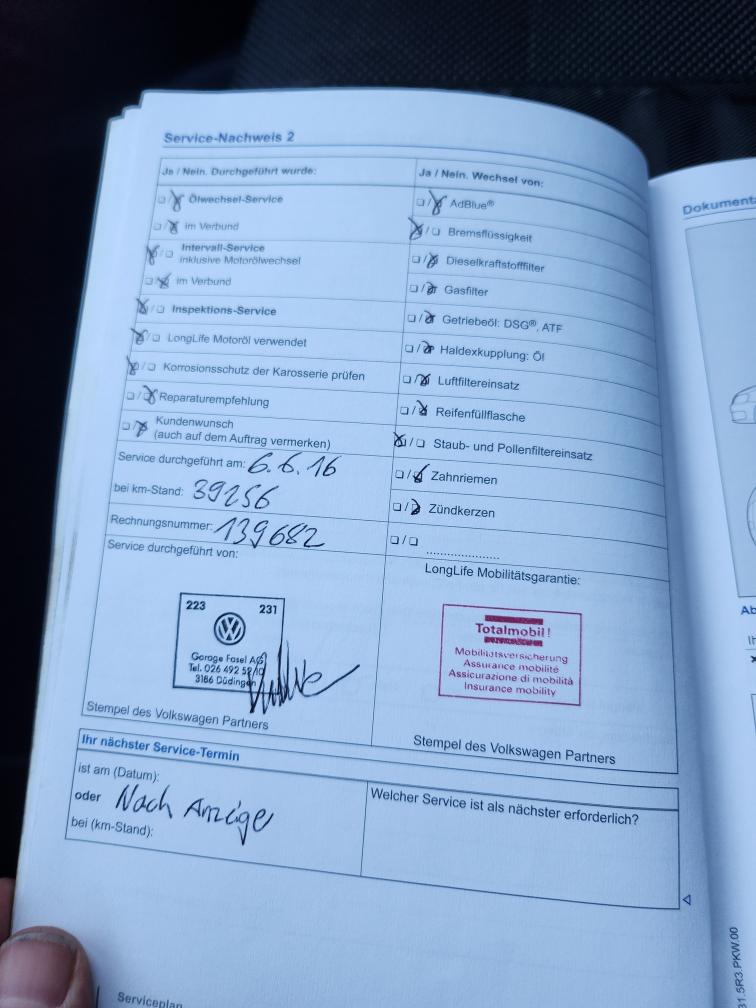 Service-Nachweis 2
Ja / Nein. Durchgeführt wurde:
Ölwechsel-Service
im Verbund
Intervall-Service
inklusive Motorölwechsel
im Verbund
Inspektions-Service
LongLife Motoröl verwendet
Korrosionsschutz der Karosserie prüfen
Reparaturempfehlung
Kundenwunsch
(auch auf dem Auftrag vermerken)
Service durchgeführt am: 6.6.16
bei km-Stand: 39256
Rechnungsnummer: 139682
Service durchgeführt von:
223 231
Garage Fasel AG
Tel. 026 492
3186 Düdingen
Stempel des Volkswagen Partners
Ja / Nein. Wechsel von:
AdBlue®
Bremsflüssigkeit
Dieselkraftstofffilter
Gasfilter
Getriebeöl: DSG®, ATF
Haldexkupplung: Öl
Luftfiltereinsatz
Reifenfüllflasche
Staub- und Pollenfiltereinsatz
Zahnriemen
Zündkerzen
LongLife Mobilitätsgarantie:
Totalmobil!
Mobilitätsversicherung
Assurance mobilité
Assicurazione di mobilità
Insurance mobility
Stempel des Volkswagen Partners
Ihr nächster Service-Termin
ist am (Datum):
oder Nach Anzeige
bei (km-Stand):
Welcher Service ist als nächster erforderlich?
Serviceplan
Dokument
Ab
1.5R3.PKW.00